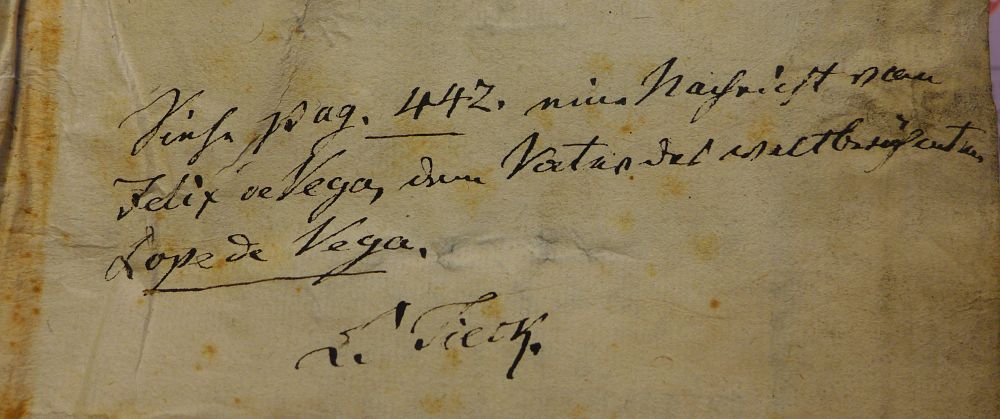 Siehe pag. 442. eine Nachricht vom
Felix de Vega, dem Vater des weltberühmten
Lope de Vega.
L. Tieck.